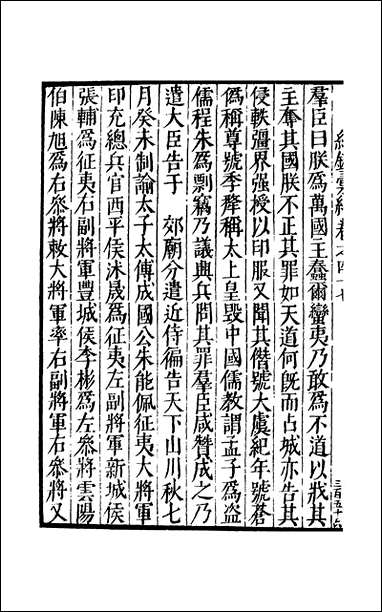 紀錄彙編卷之四十七
羣臣曰朕爲萬國主蠢爾蠻夷乃敢爲不道以戕其
主奪其國朕不正其罪如天道何旣而占城亦告其
侵軼彊界强授以印服又聞其僭號大虞紀年號蒼
僞稱尊號季犛稱太上皇毀中國儒教謂孟子爲盜
儒程朱爲剽竊乃議興兵問其罪羣臣咸贊成之乃
遣大臣告于　郊廟分遣近侍徧告天下山川秋七
月癸未制諭太子太傅成國公朱能佩征夷大將軍
印充總兵官西平侯沐晟爲征夷左副將軍新城侯
張輔爲征夷右副將軍豐城侯李彬爲左參將雲陽
伯陳旭爲右參將敕大將軍率右副將軍右參將又